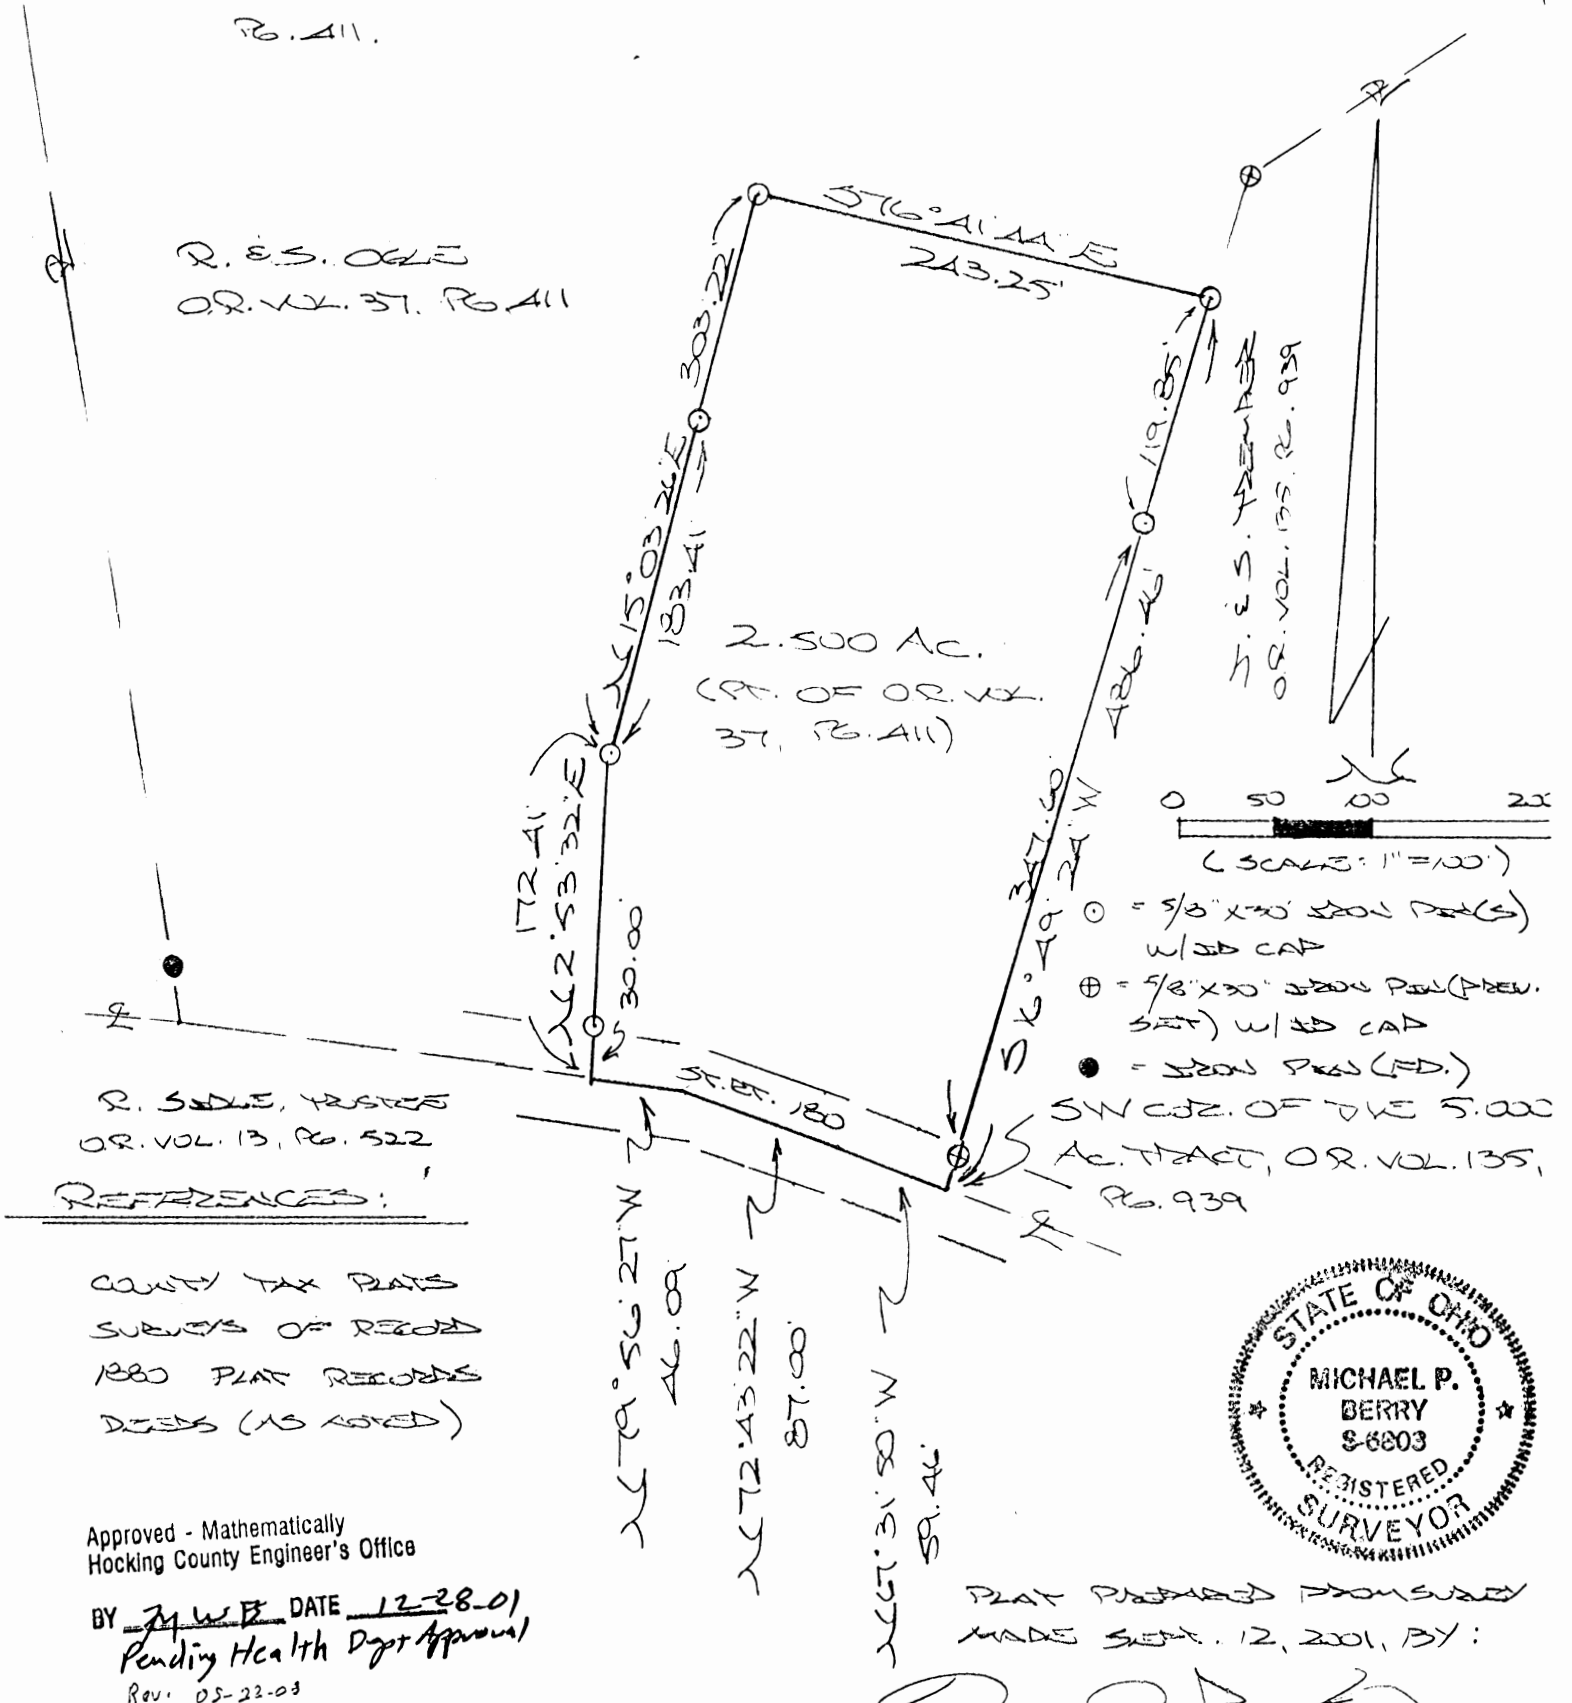 PG. 411.
R. & S. OGLE
O.R. VOL. 37, PG. 411
S 76° 41' 44" E
243.25'
303.22'
N 15° 03' 26" E
183.41'
119.85'
486.46'
347.60'
S 16° 49' 24" W
O.R. VOL. 135, PG. 939
2.500 AC.
(PT. OF O.R. VOL.
37, PG. 411)
172.41'
N 2° 53' 32" E
30.00'
N
0 50 100
(SCALE: 1" = 100')
= 5/8" X 30" IRON PIN(S)
W/ID CAP
= 5/8" X 30" IRON PIN (PREV.
SET) W/ID CAP
= IRON PIN (FD.)
SW COR. OF THE 5.000
AC. TRACT, O.R. VOL. 135,
PG. 939
ST. RT. 180
R. SIDLE, TRUSTEE
O.R. VOL. 13, PG. 522
REFERENCES:
COUNTY TAX PLATS
SURVEYS OF RECORD
1880 PLAT RECORDS
DEEDS (AS NOTED)
N 79° 56' 27" W
46.09'
N 72° 43' 22" W
87.00'
N 67° 31' 50" W
59.46'
STATE OF OHIO
MICHAEL P.
BERRY
S-6803
REGISTERED
SURVEYOR
Approved - Mathematically
Hocking County Engineer's Office
BY DATE 12-28-01
Pending Health Dept Approval
Rev. 05-23-03
PLAT PREPARED FROM SURVEY
MADE SEPT. 12, 2001, BY: